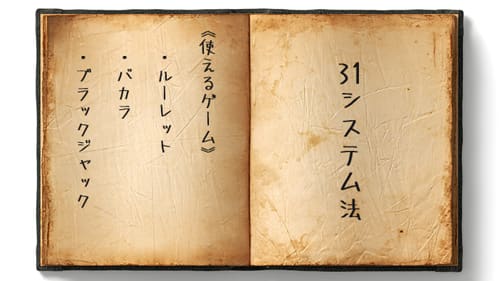 31システム法
《使えるゲーム》
・ルーレット
・バカラ
・ブラックジャック